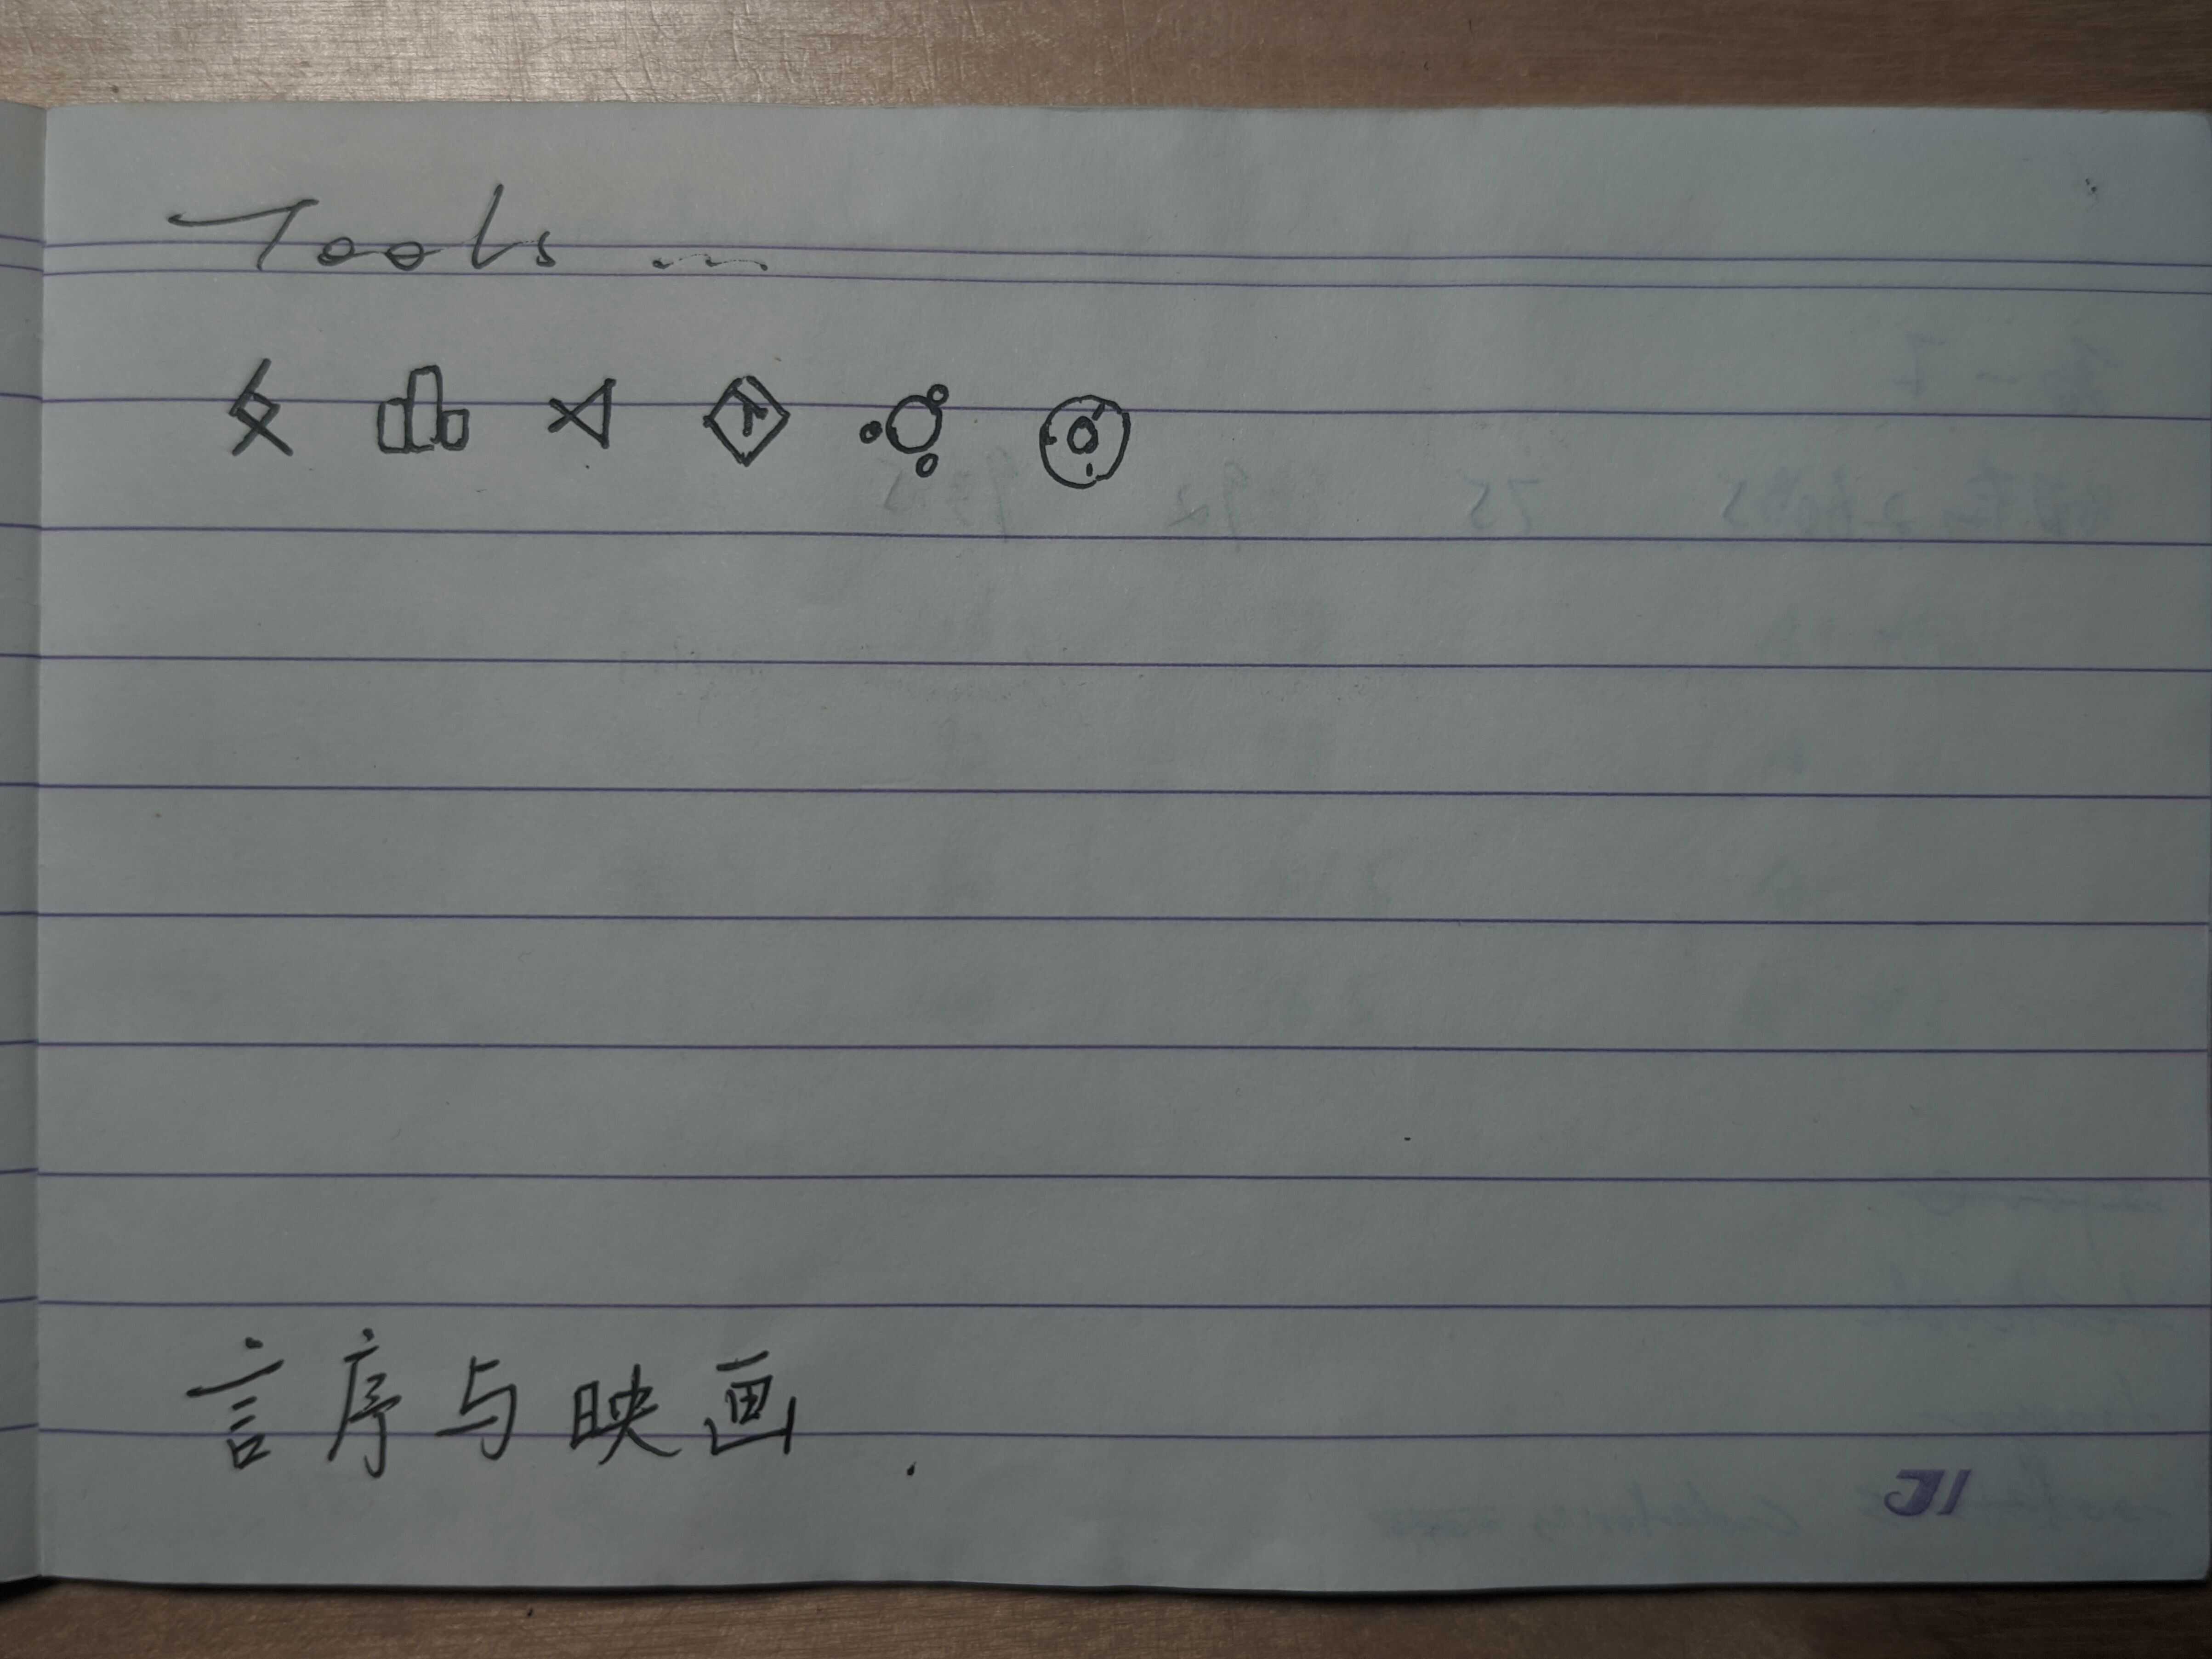 Tools ...
言序与映画